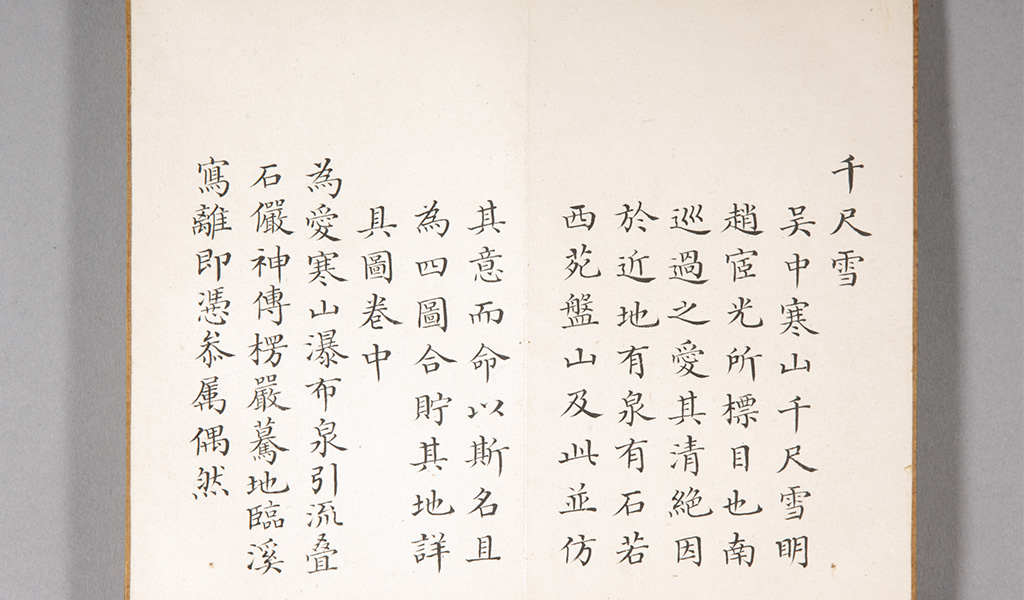 千尺雪
吴中寒山千尺雪明
趙宧光所標目也南
巡過之愛其清絶因
於近地有泉有石若
西苑盤山及此並仿
其意而命以斯名且
為四圖合貯其地詳
具圖卷中
為愛寒山瀑布泉引流疊
石儼神傳楞嚴驀地臨溪
寫離即憑叅属偶然